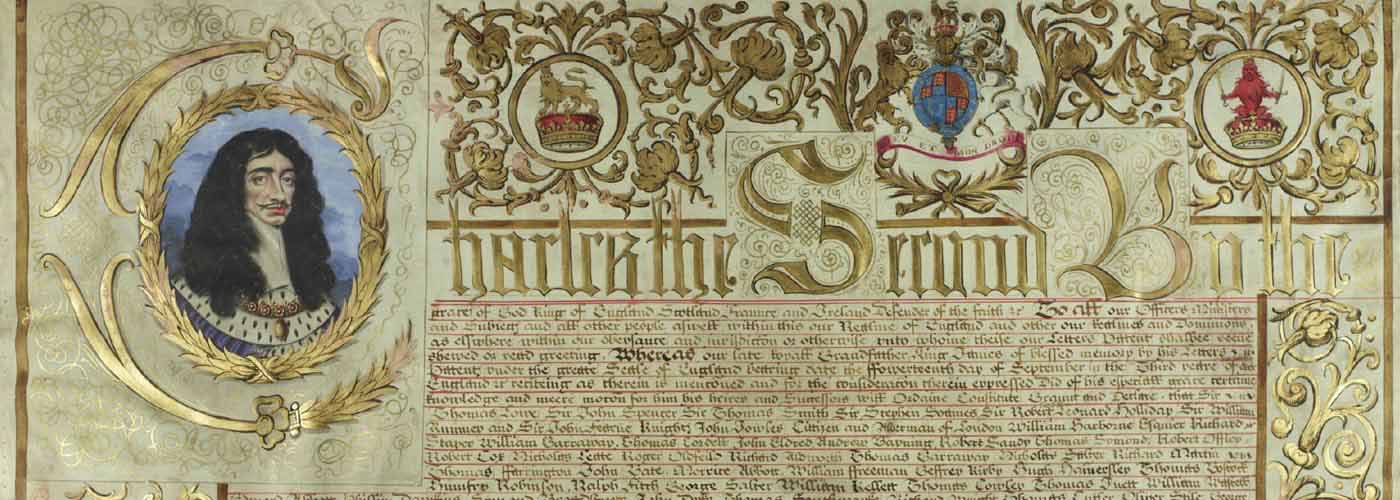 ET MON DROIT
Charles the Second By the
grace of God King of England Scotland France and Ireland Defender of the faith &c To all our Officers Ministers
and Subiects and all other people aswell within this our Realme of England and other our Realmes and Dominions
as elswhere within our obeysance and iurisdiccon or otherwise unto whome theise our Letters Patent shalbee seene
shewed or read greeting. Whereas our late royall Grandfather King James of blessed memory by his Letters
Patent under the greate Seale of England bearing date the fowerteenth day of September in the Third yeare of
England &c reciting as therein is mentioned and for the consideracon therein expressed Did of his especiall grace certaine
knowledge and meere mocon for him his heires and Successors will Ordaine Constitute Graunt and Declare that Sir
Thomas Lowe Sir John Spencer Sir Thomas Smith Sir Stephen Soames Sir Robert Leonard Holliday Sir William
Rumney and Sir John Knights John Jowles Citizen and Alderman of London William Harborne Esquier Richard
Staper William Garraway Thomas Cordell John Eldred Andrew Bayning Robert Sandy Thomas Symond Robert Offley
Robert Cox Nicholas Leate Roger Oldfeild Richard Thomas Garraway Nicholas Salter Richard Martin
Thomas ffarrington John Bate Morrice Abbott William ffreeman Geffrey Kirby Hugh Hamersley Thomas Bostock
Humfrey Robinson Ralph George Salter William Kellett Thomas Cowley Thomas Juett William